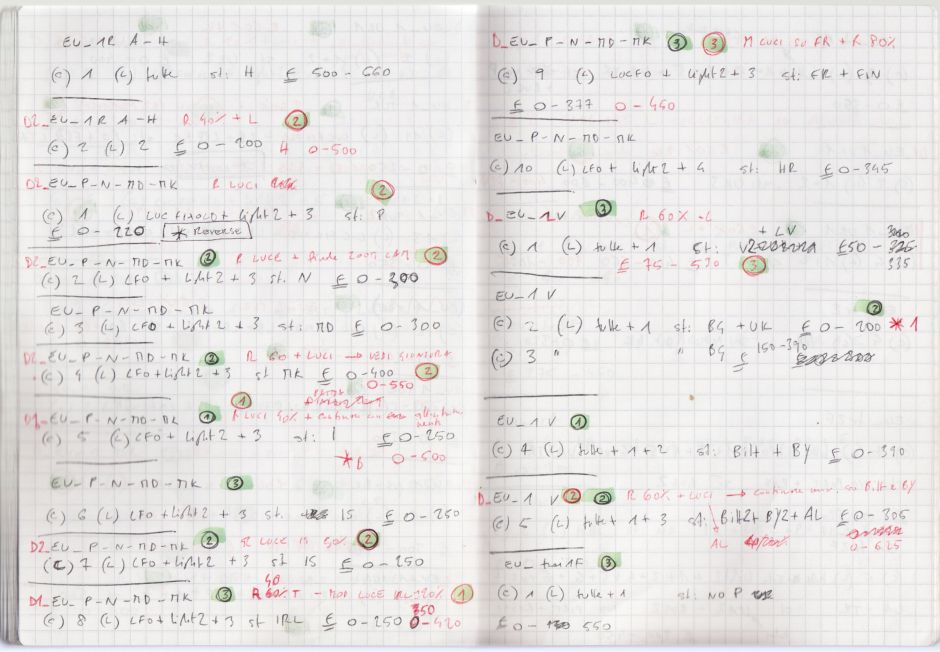 EU_1R A-H
(C) 1 (L) tutte st: H F 500-660
D2_EU_1R A-H R 40% + L 2
(C) 2 (L) 2 F 0-200 H 0-500
D2_EU_P-N-MD-MK R LUCI 2
(C) 1 (L) LUCFIXOLD + Light 2 + 3 st: P
F 0-220 * Reverse
D2_EU_P-N-MD-MK 2 R LUCE + 2
(C) 2 (L) LFO + Light 2 + 3 st. N F 0-300
EU_P-N-MD-MK
(C) 3 (L) LFO + Light 2 + 3 st: MD F 0-300
D2_EU_P-N-MD-MK 2 R 60 + LUCI → VEDI GIUNTURA
(C) 4 (L) LFO + Light 2 + 3 st MK F 0-400 2
0-550
1
D1_EU_P-N-MD-MK 1 R LUCI 40% +
(C) 5 (L) LFO + Light 2 + 3 st: I F 0-250
0-500
EU-P-N-MD-MK 3
(C) 6 (L) LFO + Light 2 + 3 st. IS F 0-250
D2_EU_P-N-MD-MK 2 R LUCE IS 50% 2
(C) 7 (L) LFO + Light 2 + 3 st IS F 0-250
40
D1_EU_P-N-MD-MK 3 R T - MOD LUCE IRL 20% 1
350
(C) 8 (L) LFO + Light 2 + 3 st IRL F 0-250 0-420
D_EU_P-N-MD-MK 3 3 M LUCI SU FR + R 80%
(C) 9 (L) LUCFO + Light 2 + 3 st: FR + FIN
F 0-377 0-450
EU_P-N-MD-MK
(C) 10 (L) LFO + Light 2 + 4 st: HR F 0-345
D_EU_1LV 3 R 60% + L
+ LV
(C) 1 (L) tutte + 1 st: F 50-
335
F 75-530 3
EU_1 V
2
(C) 2 (L) tutte + 1 st: BG + UK F 0-200 * 1
(C) 3 " " BG F 150-390
EU_1 V 1
(C) 4 (L) tutte + 1 + 2 st: BiH + BY F 0-390
D_EU-1 V 2 2 R 60% + LUCI → continuare su BiH e BY
(C) 5 (L) tutte + 1 + 3 st: BiH2 + BY2 + AL F 0-305
AL
0-625
EU_ 1F 3
(C) 1 (L) tutte + 1 st: NO P
F 0- 550